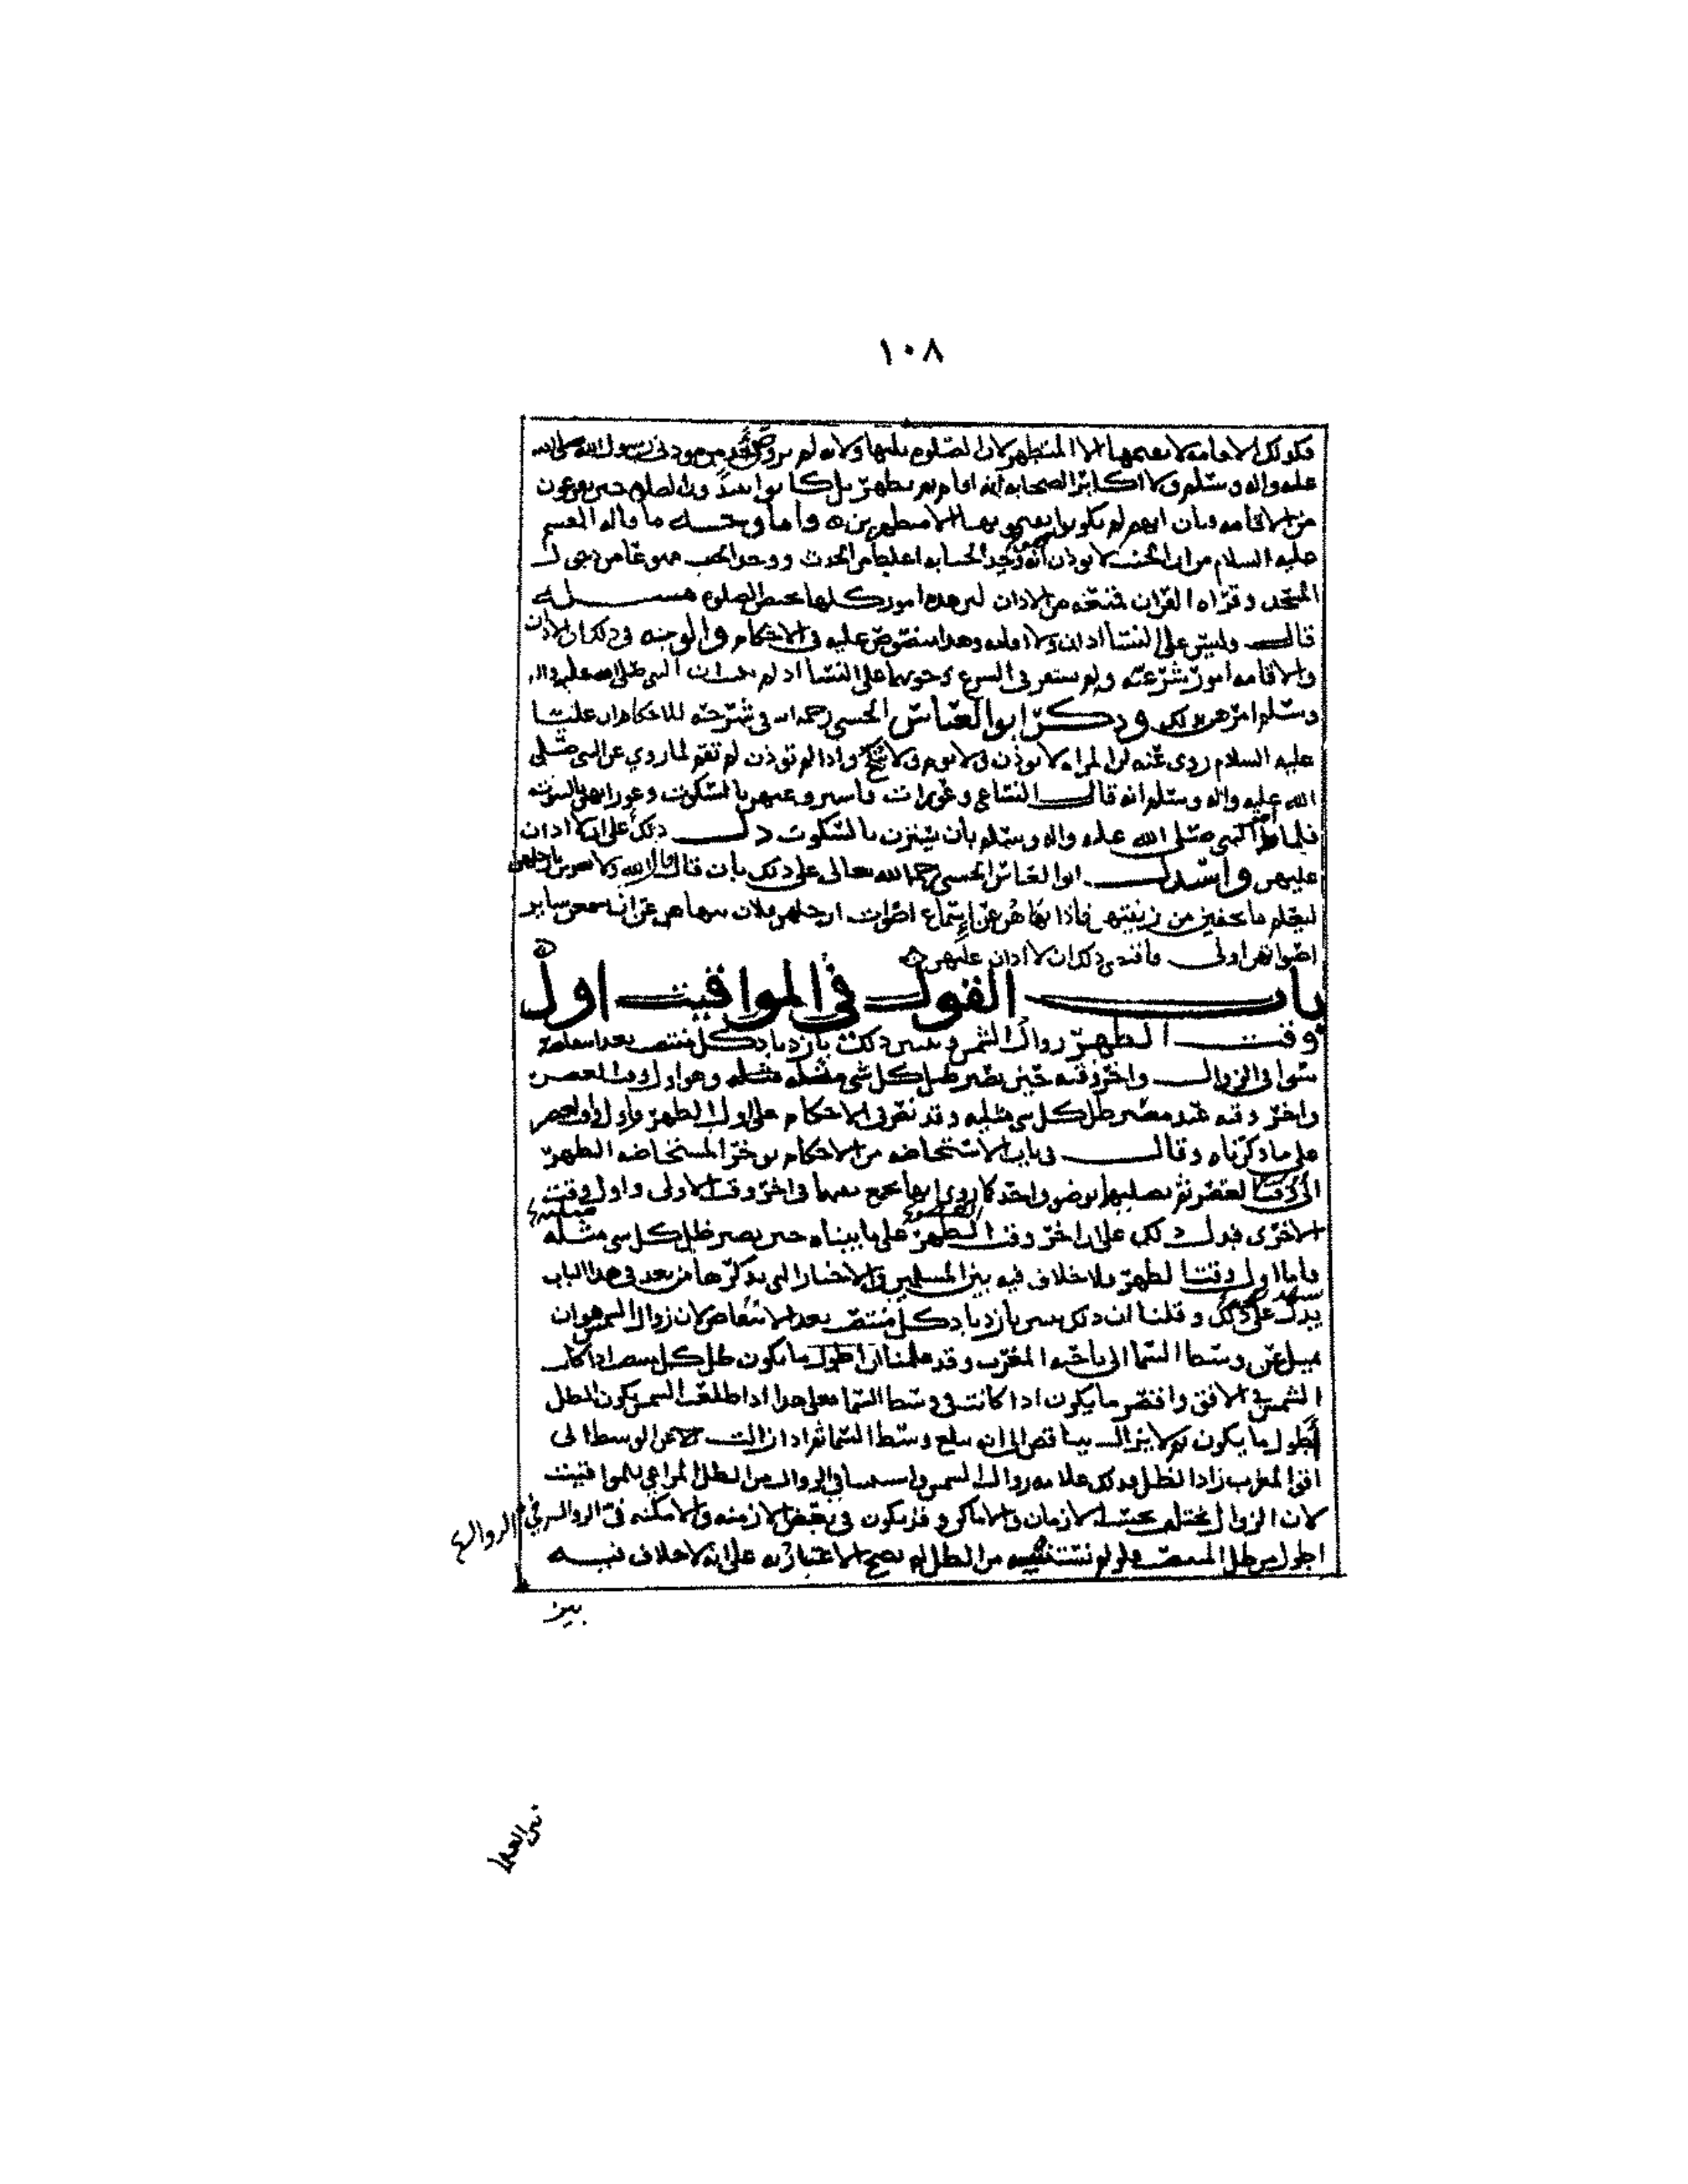 ١٠٨
فكذلك الاقامه لا يقيمها الا المتطهر لان الصلوه تليها ولانه لم يرو عن احد من موذني رسول الله صلى الله
عليه واله وسلم ولا اكابر الصحابه انه اقام بغير تطهر بل كانوا الصلاه حين يفرغون
من الاقامه فبان انهم لم يكونوا يقيمونها الا متطهرين ه وأما وجه ما قاله القسم
عليه السلام من ان الجنب لا يوذن أنه وجد الجنابه اغلظ من الحدث ووجد الجنب ممنوعا من دخول
المسجد وقراه القران فمنعه من الاذان لان هذه امور كلها تختص الصلوه مسله
قال وليس على النسا اذان ولا اقامه وهذا منصوص عليه في الاحكام والوجه في ذلك ان الاذان
والاقامه امور شرعيه ولم يستقر في الشرع وجوبهما على النسا اذ لم ان النبي صلى الله عليه واله
وسلم امرهن بذلك وذكر ابو العباس الحسني رحمه الله في شرحه للاحكام ان عليا
عليه السلام روى عنه ان المراه لا توذن ولا توم ولا تنكح واذا لم توذن لم تقم لما روي عن النبي صلى
الله عليه واله وسلم انه قال النسا عي وعورات فاستروا عيهن بالسكوت وعوراتهن بالبيوت
فلما امر النبي صلى الله عليه واله وسلم بان يسترن بالسكوت دل ذلك على ان لا اذان
عليهن واستدل ابو العباس الحسني رحمه الله تعالى على ذلك بان قال قال الله ولا يضربن بارجلهن
ليعلم ما يخفين من زينتهن فاذا نهاهن عن إستماع اصوات ارجلهن فلان ينهاهن عن ان يسمعن ساير
اصواتهن اولى فاقتضى ذلك ان لا اذان عليهن ه
باب القول في المواقيت اول
وقت الظهر زوال الشمس ويتبين ذلك بازدياد ظل كل منتصب بعد
سوا في الزوال واخر وقته حين يصير ظل كل شي مثله وهو اول وقت العصر
واخر وقته عند مصير ظل كل شي مثليه وقد نص في الاحكام على اول الظهر واول وقت العصر
على ما ذكرناه وقال في باب الاستحاضه من الاحكام توخر المستحاضه الظهر
الى وقت العصر ثم تصليهما بوضو واحد كما روي انها تجمع بينهما في اخر وقت الاولى واول وقت
الاخرى فدل ذلك على ان اخر وقت الظهر على ما بيناه حين يصير ظل كل شي مثله
فاما اول وقت الظهر فلا خلاف فيه بين المسلمين والاخبار التي نذكرها من بعد في هذا الباب
يدل على ذلك وقلنا ان ذلك يتبين بازدياد ظل كل منتصب بعد الانتقاص لان زوال الشمس هو ان
تميل عن وسط السما الى ناحيه المغرب وقد علمنا ان اطول ما يكون ظل كل منتصب اذا كانت
الشمس في الافق واقصر ما يكون اذا كانت في وسط السما فعلى هذا اذا طلعت الشمس يكون الظل
أطول ما يكون ثم لا يزال يتناقص الى ان تبلغ وسط السما ثم اذا زالت عن الوسط الى
افق المغرب زاد الظل فذلك علامه زوال الشمس واستثنينا في الزوال من الظل المراعى للمواقيت
لان الزوال يختلف بحسب الازمان والاماكن وقد يكون في بعض الازمنه والامكنه في الزوال
اطول من ظل المنتصب فلو لم نستثنيه من الظل لم يصح الاعتبار به على انه لا خلاف فيه
بين